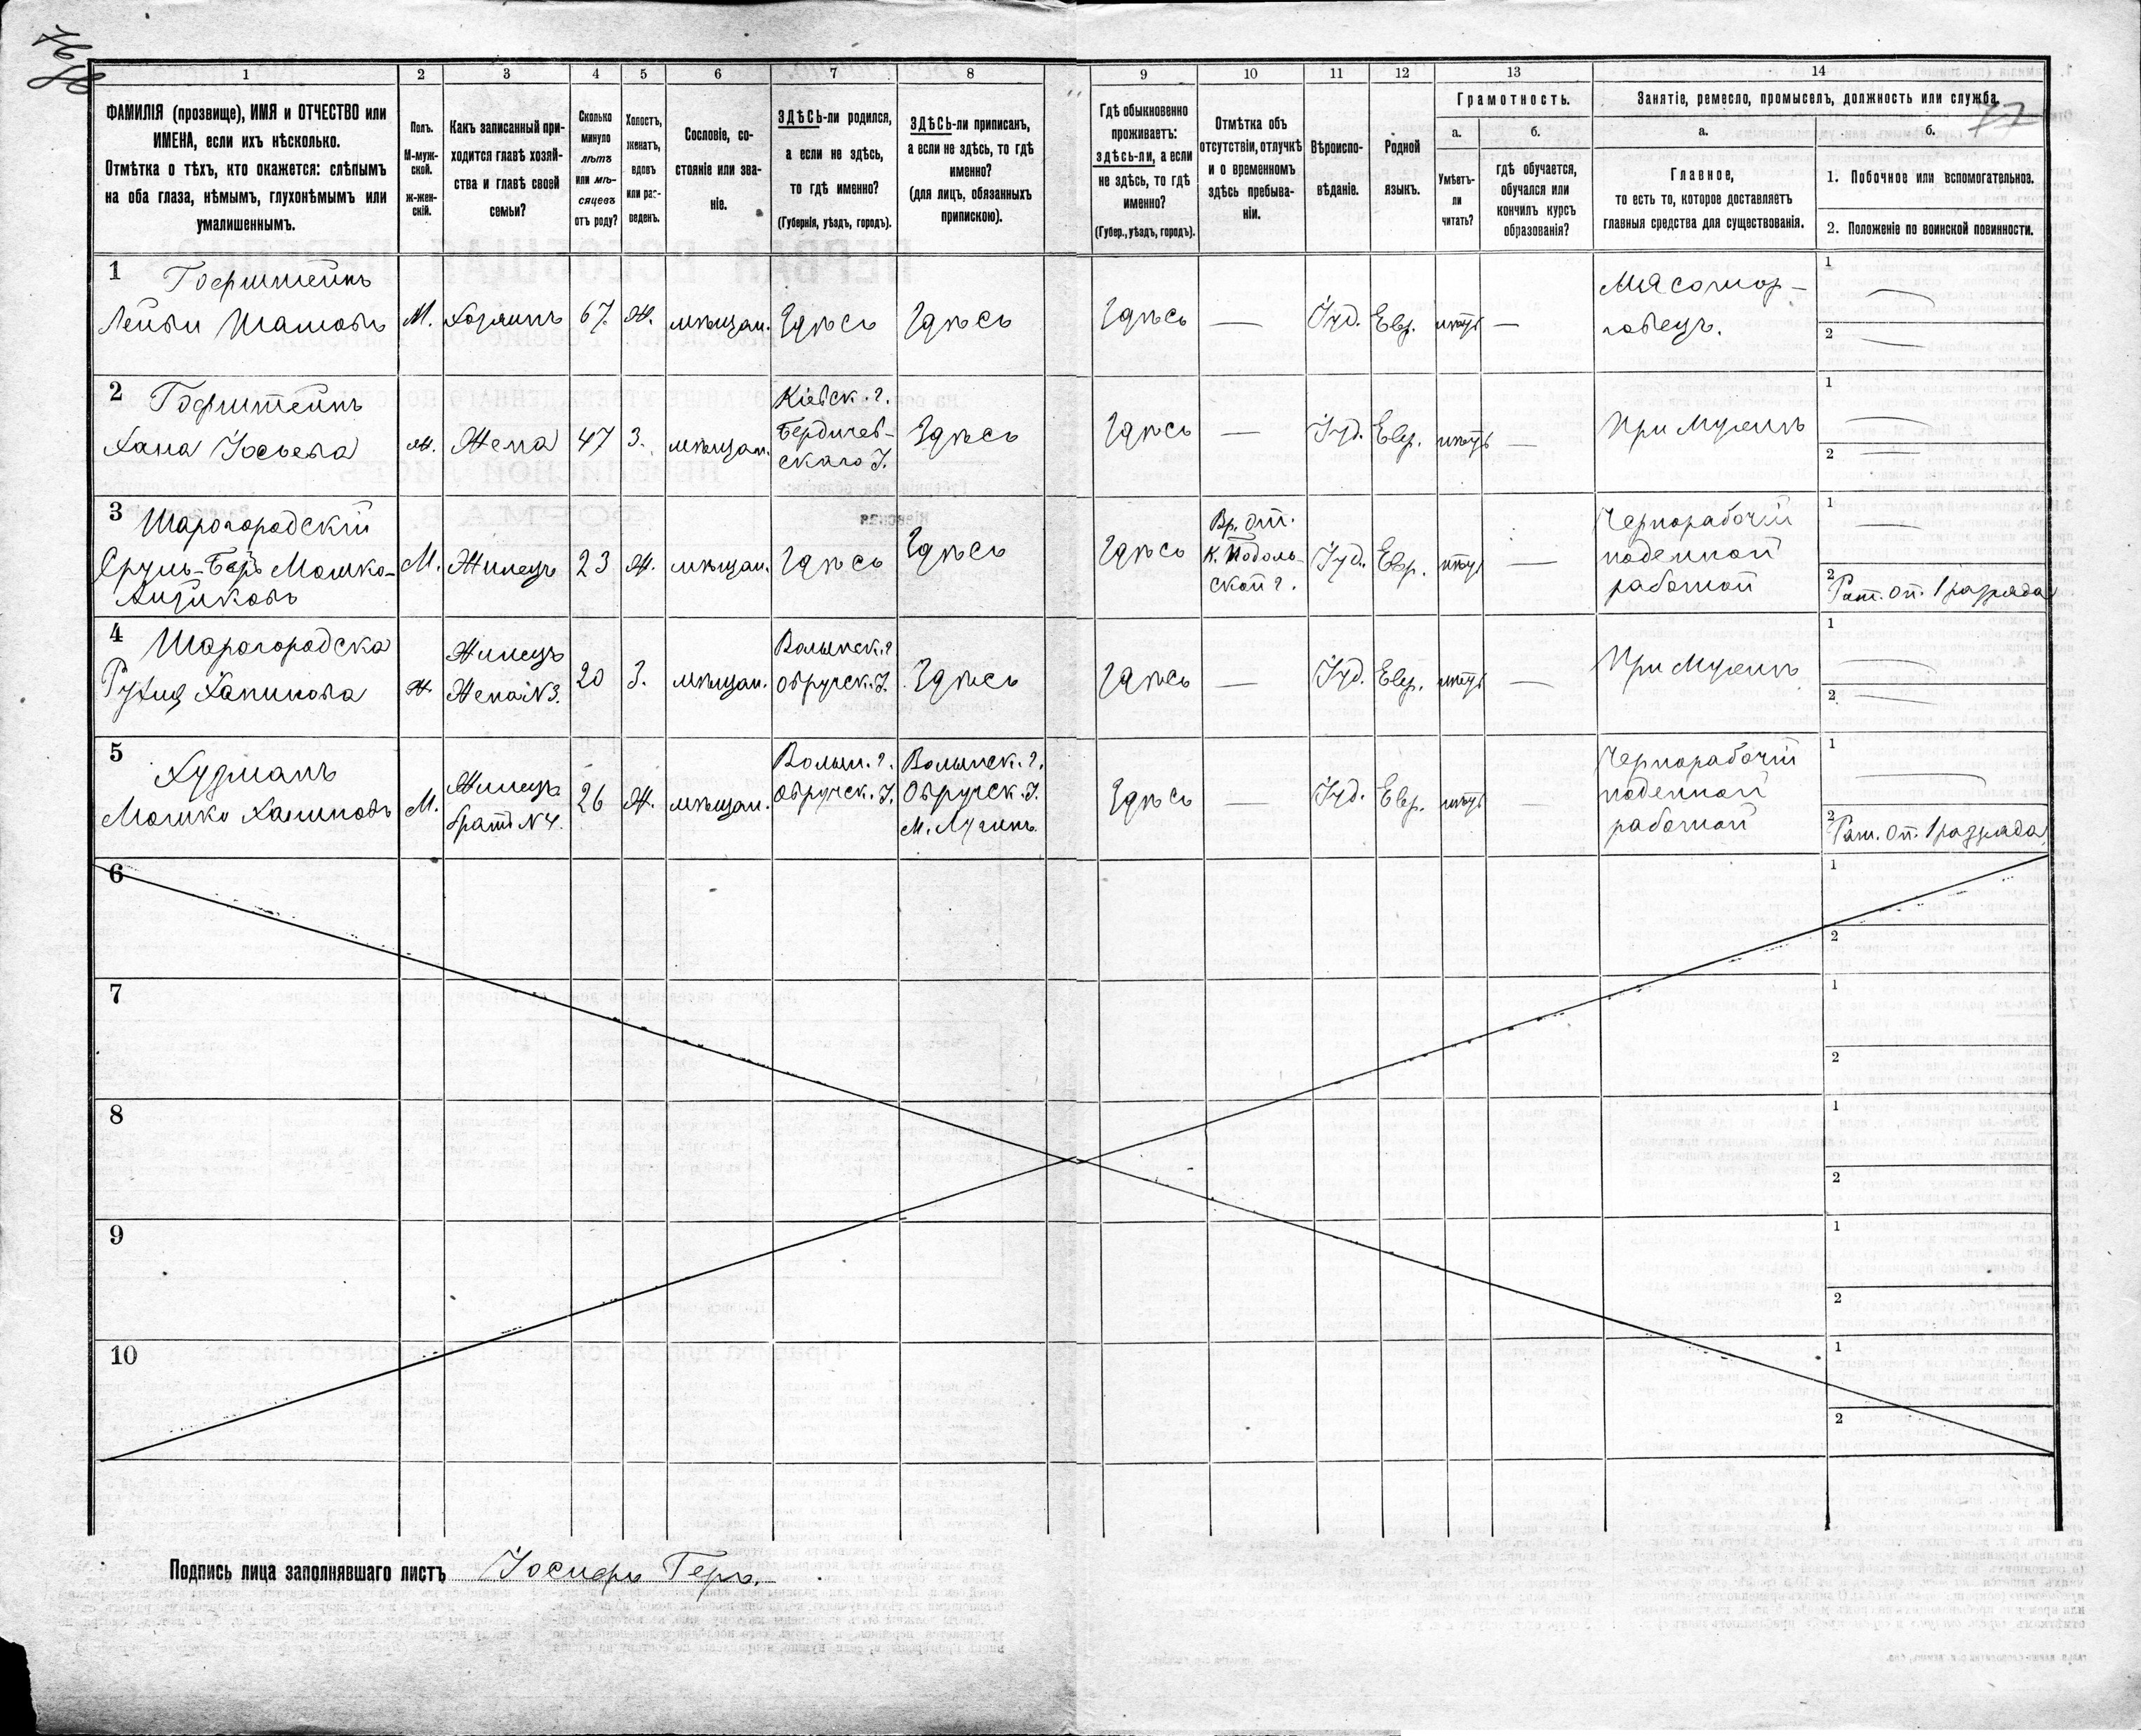 1 2 3 4 5 6 7 8 9 10 11 12 13 14
ФАМИЛІЯ (прозвище), ИМЯ и ОТЧЕСТВО или
ИМЕНА, если ихъ нѣсколько.
Отмѣтка о тѣхъ, кто окажется: слѣпымъ
на оба глаза, нѣмымъ, глухонѣмымъ или
умалишеннымъ.
Полъ.
М-муж-
ской.
ж-жен-
скій.
Какъ записанный при-
ходится главѣ хозяй-
ства и главѣ своей
семьи?
Сколько
минуло
лѣтъ
или мѣ-
сяцевъ
отъ роду?
Холостъ,
женатъ,
вдовъ
или раз-
веденъ.
Сословіе, со-
стояніе или зва-
ніе.
ЗДѢСЬ-ли родился,
а если не здѣсь,
то гдѣ именно?
(Губернія, уѣздъ, городъ).
ЗДѢСЬ-ли приписанъ,
а если не здѣсь, то гдѣ
именно?
(для лицъ, обязанныхъ
припискою).
Гдѣ обыкновенно
проживаетъ:
здѣсь-ли, а если
не здѣсь, то гдѣ
именно?
(Губер., уѣздъ, городъ).
Отмѣтка объ
отсутствіи, отлучкѣ
и о временномъ
здѣсь пребыва-
ніи.
Вѣроиспо-
вѣданіе.
Родной
языкъ.
Грамотность.
а.
Умѣетъ-
ли
читать?
б.
гдѣ обучается,
обучался или
кончилъ курсъ
образованія?
Занятіе, ремесло, промыселъ, должность или служба.
77
а.
Главное,
то есть то, которое доставляетъ
главныя средства для существованія.
б.
1. Побочное или вспомогательное.
2. Положеніе по воинской повинности.
1
Гофштейнъ
Лейби
М.
Хозяинъ
67.
Ж.
мѣщан.
Здѣсь
Здѣсь
Здѣсь
—
Іуд.
Евр.
—
Мясотор-
говецъ.
1
2
2
Гофштейнъ
Хана Іосьева
Ж.
Жена
47
З.
мѣщан.
Кіевск. г.
Бердичев-
скаго У.
Здѣсь
Здѣсь
—
Іуд.
Евр.
—
При Мужѣ
1
2
3
Шарогородскій
Сруль-Беръ Мошко-
М.
Жилецъ
23
Ж.
мѣщан.
Здѣсь
Здѣсь
Здѣсь
Вр. от.
К. Подоль-
ской г.
Іуд.
Евр.
—
Чернорабочій
поденной
работой
1
2
Рат. оп. 1 разряда
4
Шарогородска
Хаимова
Ж.
Жилецъ
Жена N3.
20
З.
мѣщан.
Волынск. г
Овручск. У.
Здѣсь
Здѣсь
—
Іуд.
Евр.
—
При Мужѣ
1
2
5
Хузманъ
Мошко Хаимовъ
М.
Жилецъ
братъ N4.
26
Ж.
мѣщан.
Волын. г.
Овручск. У.
Волынск. г.
Овручск. У.
М. Лугинъ.
Здѣсь
—
Іуд.
Евр.
—
Чернорабочій
поденной
работой
1
2
Рат. оп. 1 разряда
6
1
2
7
1
2
8
1
2
9
1
2
10
1
2
Подпись лица заполнявшаго листъ Іосифъ Геръ.